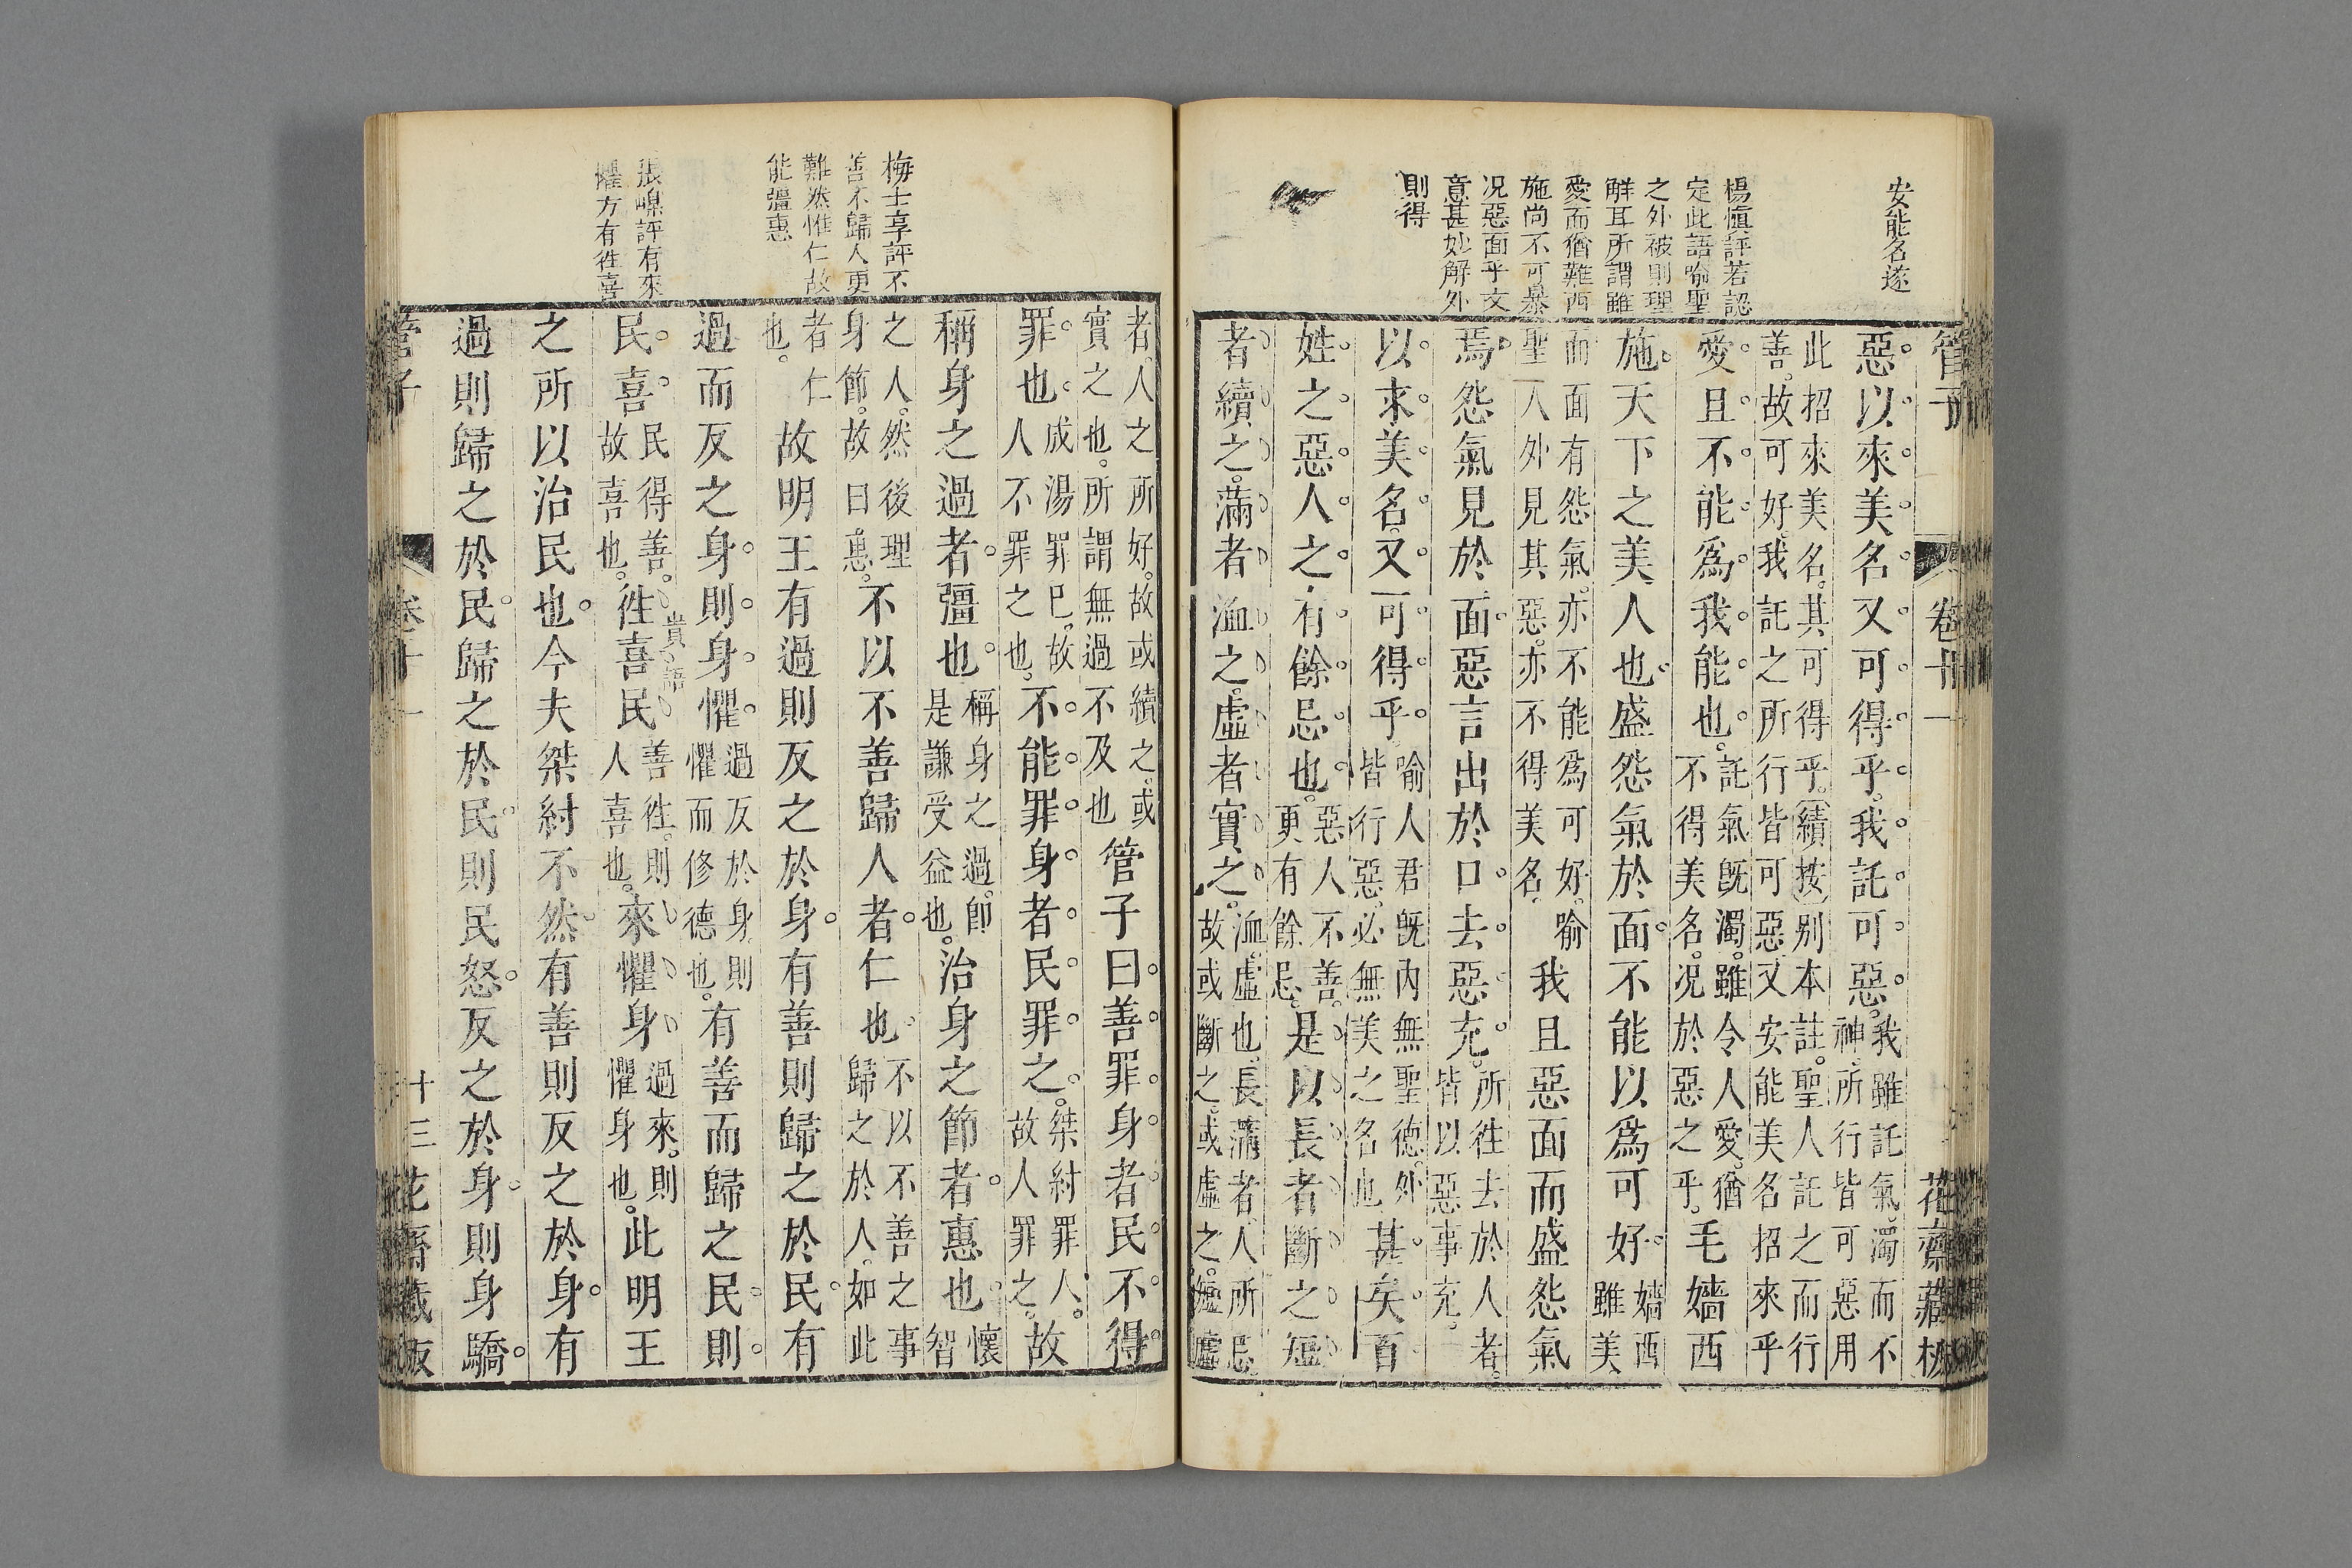 安能名遂
楊慎評若認
定此語喻聖
之外被則理
解耳所謂雖
愛而猶難西
施尚不可暴
况惡面乎文
意甚妙解外
則得
管子 卷十一 花齋藏板
惡以來美名又可得乎我託可惡我雖託氣濁而不神所行皆可惡用
此招來美名其可得乎(續按)別本註聖人託之而行善故可好我託之所行皆可惡又安能美名招來乎
愛且不能爲我能也託氣旣濁雖令人愛猶不得美名况於惡之乎毛嬙西
施天下之美人也盛怨氣於面不能以爲可好嬙西雖美
而面有怨氣亦不能爲可好喻聖人外見其惡亦不得美名我且惡面而盛怨氣
焉怨氣見於面惡言出於口去惡充所徃去於人者皆以惡事充
以求美名又可得乎喻人君旣內無聖德外皆行惡必無美之名也甚矣百
姓之惡人之有餘忌也惡人不善更有餘忌是以長者斷之短
者續之滿者洫之虛者實之洫虛也長滿者人所忌故或斷之或虛之短虛
梅士享評不
善不歸人更
難然惟仁故
能彊惠
張嵲評有來
懼方有徃喜
者人之所好故或續之或實之也所謂無過不及也管子曰善罪身者民不得
罪也成湯罪巳故人不罪之也不能罪身者民罪之桀紂罪人故人罪之故
稱身之過者彊也稱身之過卽是謙受益也治身之節者惠也懷智
之人然後理身節故曰惠不以不善歸人者仁也不以不善之事歸之於人如此
者仁也故明王有過則反之於身有善則歸之於民有
過而反之身則身懼過反於身則懼而修德也有善而歸之民則
民喜民得善故喜也徃喜民善徃則人喜也來懼身過來則懼身也此明王
貴語
之所以治民也今夫桀紂不然有善則反之於身有
過則歸之於民歸之於民則民怒反之於身則身驕
管子 卷十一 十三 花齋藏板